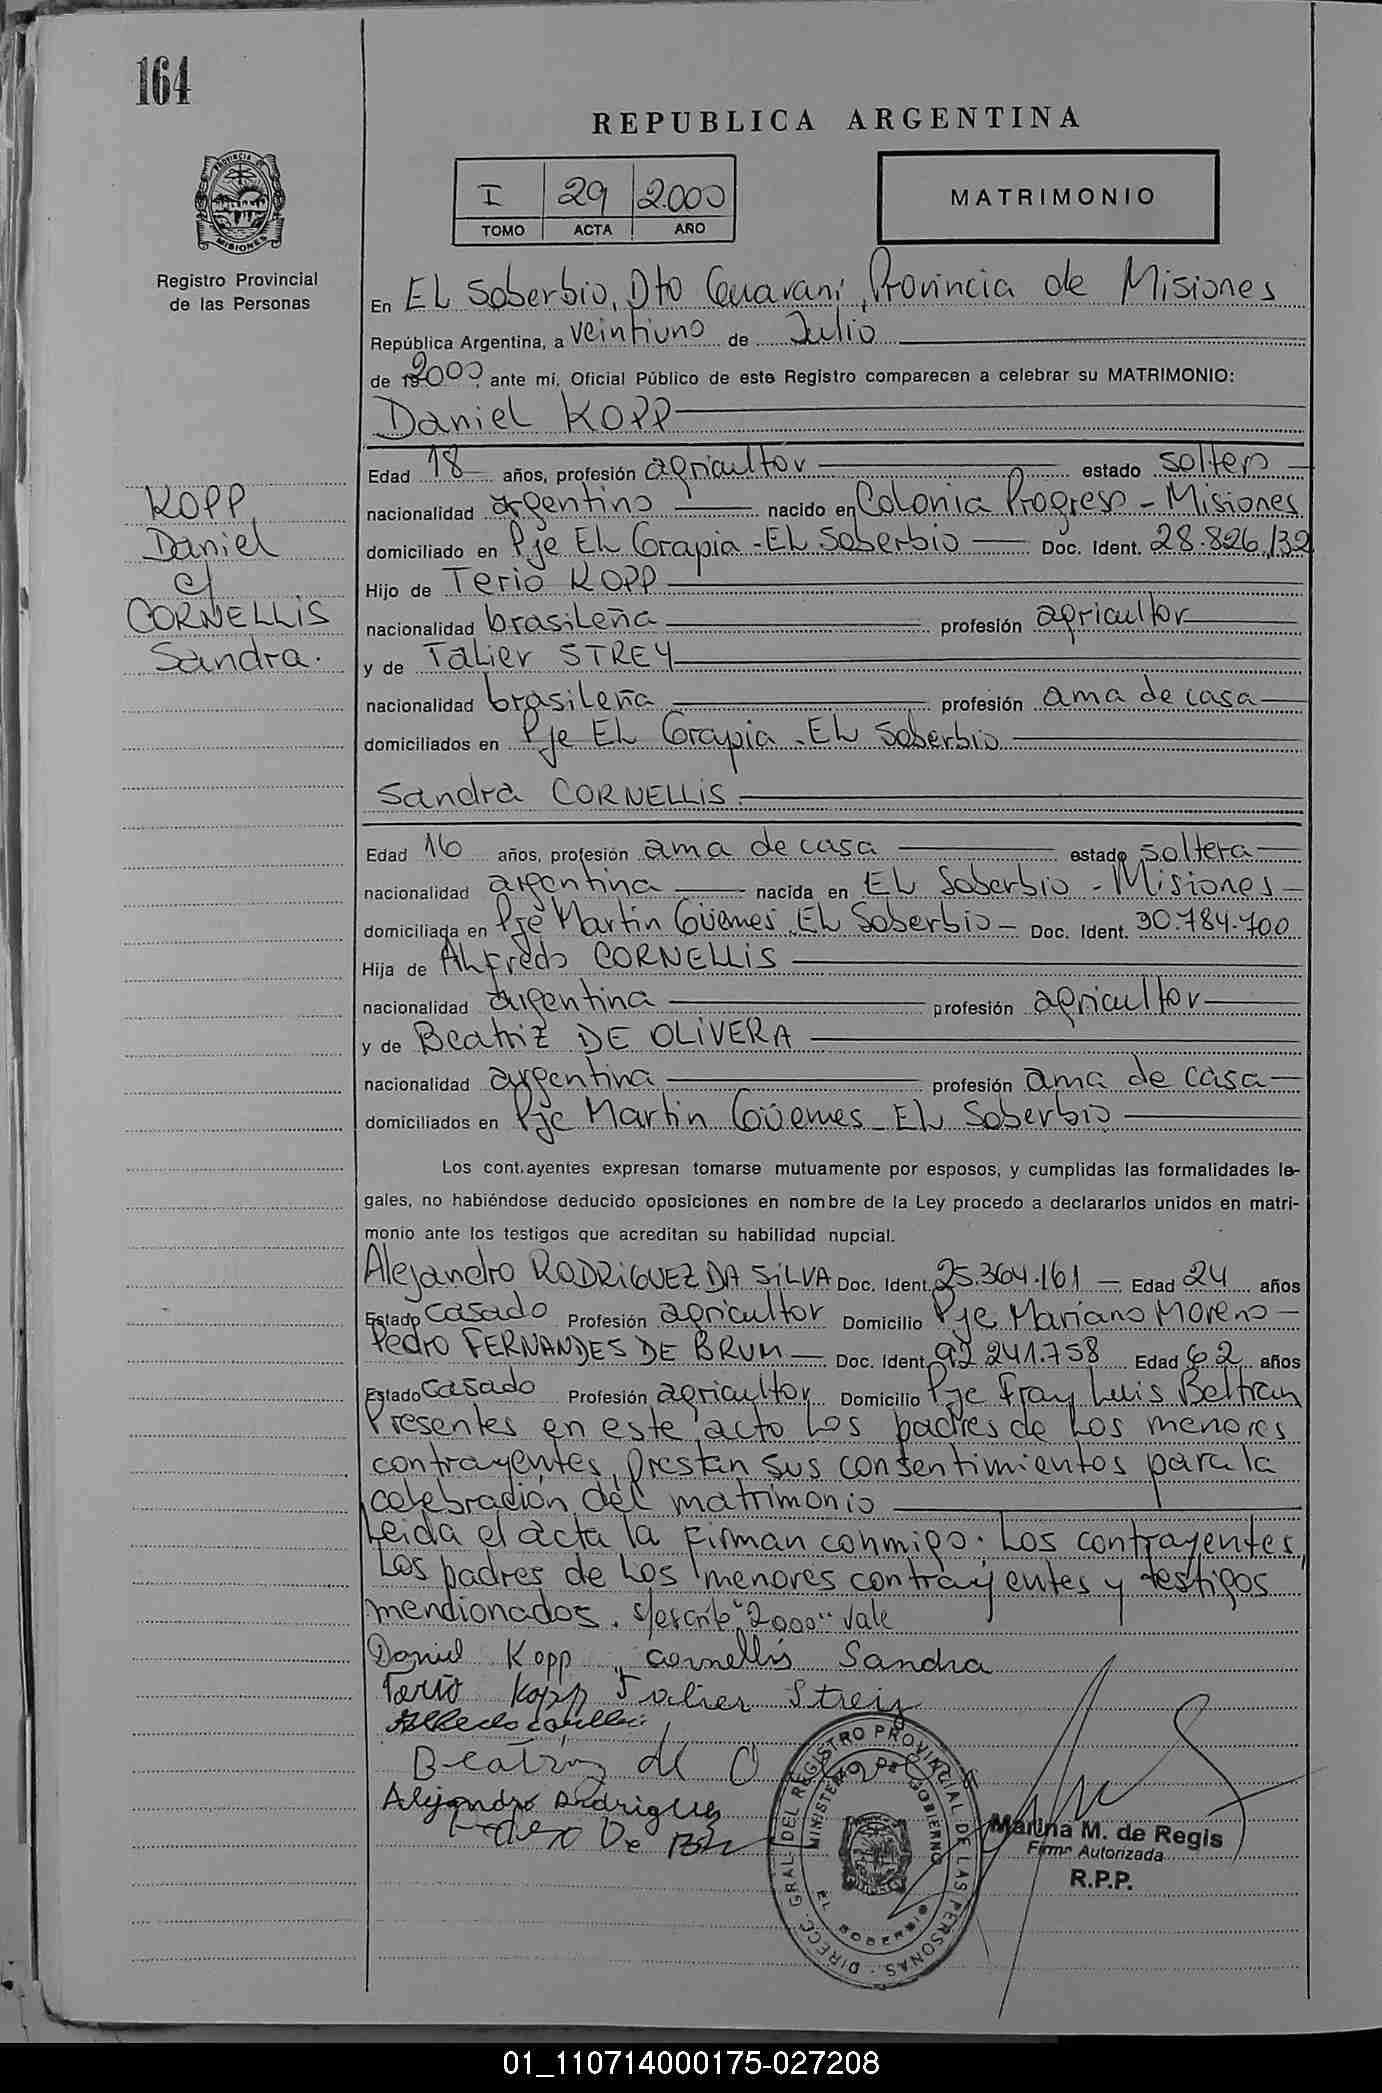 164
REPUBLICA ARGENTINA
I 29 2.000
TOMO ACTA AÑO
MATRIMONIO
PROVINCIA DE
MISIONES
Registro Provincial
de las Personas
KOPP
Daniel
c/
CORNELLIS
Sandra.
En EL Soberbio, Dto Guaraní, Provincia de Misiones
República Argentina, a veintiuno de Julio
de 2000, ante mí, Oficial Público de este Registro comparecen a celebrar su MATRIMONIO:
Daniel KOPP
Edad 18 años, profesión agricultor estado soltero
nacionalidad argentino nacido en Colonia Progreso - Misiones
domiciliado en Pje EL Grapia - EL Soberbio Doc. Ident. 28.826.132
Hijo de Terio KOPP
nacionalidad brasileña profesión agricultor
y de Talier STREY
nacionalidad brasileña profesión ama de casa
domiciliados en Pje EL Grapia - EL Soberbio
Sandra CORNELLIS
Edad 16 años, profesión ama de casa estado soltera
nacionalidad argentina nacida en EL Soberbio - Misiones
domiciliada en Pje Martin Güemes EL Soberbio Doc. Ident. 30.784.700
Hija de Alfredo CORNELLIS
nacionalidad argentina profesión agricultor
y de Beatriz DE OLIVERA
nacionalidad argentina profesión ama de casa
domiciliados en Pje Martin Güemes - EL Soberbio
Los cont.ayentes expresan tomarse mutuamente por esposos, y cumplidas las formalidades le-
gales, no habiéndose deducido oposiciones en nombre de la Ley procedo a declararlos unidos en matri-
monio ante los testigos que acreditan su habilidad nupcial.
Alejandro RODRIGUEZ DA SILVA Doc. Ident. 25.364.161 Edad 24 años
Estado casado Profesión agricultor Domicilio Pje Mariano Moreno
Pedro FERNANDES DE BRUM Doc. Ident. 92 241.758 Edad 62 años
Estado casado Profesión agricultor Domicilio Pje Fray Luis Beltran
Presentes en este acto los padres de los menores
contrayentes, prestan sus consentimientos para la
celebración del matrimonio
Leida el acta la firman conmigo. Los contrayentes,
Los padres de los menores contrayentes y testigos
mencionados. s/escrito "2000" vale
Daniel Kopp Cornellis Sandra
Terio Kopp Talier Strey
Beatriz de O
Alejandro Rodriguez
DIRECC. GRAL. DEL REGISTRO PROVINCIAL DE LAS PERSONAS
MINISTERIO DE GOBIERNO
EL SOBERBIO
Marina M. de Regis
Firma Autorizada
R.P.P.
01_110714000175-027208